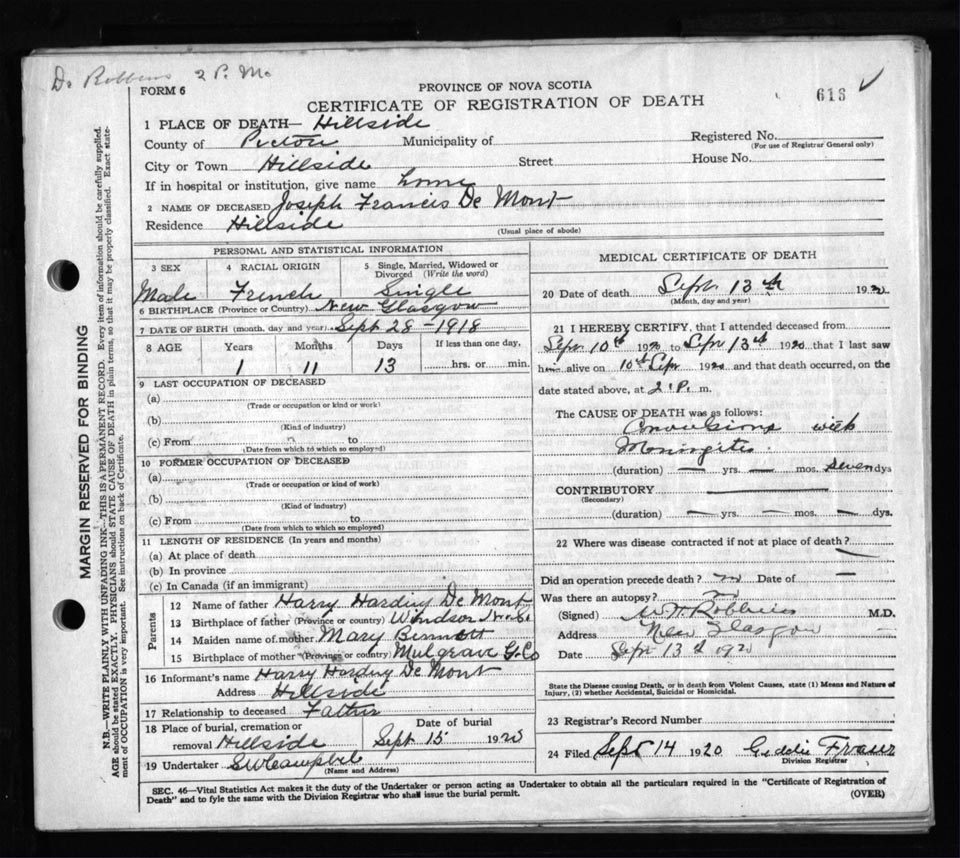 Dr Robbins 2 P. M.
FORM 6
PROVINCE OF NOVA SCOTIA
CERTIFICATE OF REGISTRATION OF DEATH
613
1 PLACE OF DEATH— Hillside
County of Pictou Municipality of
Registered No.
(For use of Registrar General only)
City or Town Hillside Street House No.
If in hospital or institution, give name home
2 NAME OF DECEASED Joseph Francis De Mont
Residence Hillside
(Usual place of abode)
PERSONAL AND STATISTICAL INFORMATION
3 SEX 4 RACIAL ORIGIN 5 Single, Married, Widowed or Divorced (Write the word)
Male French Single
6 BIRTHPLACE (Province or Country) New Glasgow
7 DATE OF BIRTH (month, day and year) Sept 28 - 1918
8 AGE Years Months Days If less than one day,
1 11 13 hrs. or min.
9 LAST OCCUPATION OF DECEASED
(a)
(Trade or occupation or kind or work)
(b)
(Kind of industry)
(c) From to
(Date from which to which so employed)
10 FORMER OCCUPATION OF DECEASED
(a)
(Trade or occupation or kind of work)
(b)
(Kind of industry)
(c) From to
(Date from which to which so employed)
11 LENGTH OF RESIDENCE (In years and months)
(a) At place of death
(b) In province
(c) In Canada (if an immigrant)
Parents
12 Name of father Harry Harding De Mont
13 Birthplace of father (Province or country) Windsor
14 Maiden name of mother Mary
15 Birthplace of mother (Province or country) Mulgrave G. Co
16 Informant's name Harry Harding De Mont
Address Hillside
17 Relationship to deceased Father
18 Place of burial, cremation or removal Hillside Date of burial Sept 15 1920
19 Undertaker S W Campbell
(Name and Address)
MEDICAL CERTIFICATE OF DEATH
20 Date of death Sept. 13th 1920
(Month, day and year)
21 I HEREBY CERTIFY, that I attended deceased from
Sept 10th 1920 to Sept 13th 1920 that I last saw
him alive on 10th Sept 1920 and that death occurred, on the
date stated above, at 2 P. m.
The CAUSE OF DEATH was as follows:
Convulsions with
Meningitis
(duration) — yrs. — mos. seven dys
CONTRIBUTORY —
(Secondary)
(duration) — yrs. — mos. — dys.
22 Where was disease contracted if not at place of death? —
Did an operation precede death? no Date of —
Was there an autopsy? no
(Signed) W H Robbins M.D.
Address New Glasgow
Date Sept 13th 1920
State the Disease causing Death, or in death from Violent Causes, state (1) Means and Nature of
Injury, (2) whether Accidental, Suicidal or Homicidal.
23 Registrar's Record Number
24 Filed Sept 14 1920 Fraser
Division Registrar
SEC. 46—Vital Statistics Act makes it the duty of the Undertaker or person acting as Undertaker to obtain all the particulars required in the "Certificate of Registration of
Death" and to fyle the same with the Division Registrar who shall issue the burial permit.
(OVER)
MARGIN RESERVED FOR BINDING
N.B.—WRITE PLAINLY WITH UNFADING INK—THIS IS A PERMANENT RECORD. Every item of information should be carefully supplied.
AGE should be stated EXACTLY. PHYSICIANS should STATE CAUSE OF DEATH in plain terms, so that it may be properly classified. Exact state-
ment of OCCUPATION is very important. See instructions on back of Certificate.